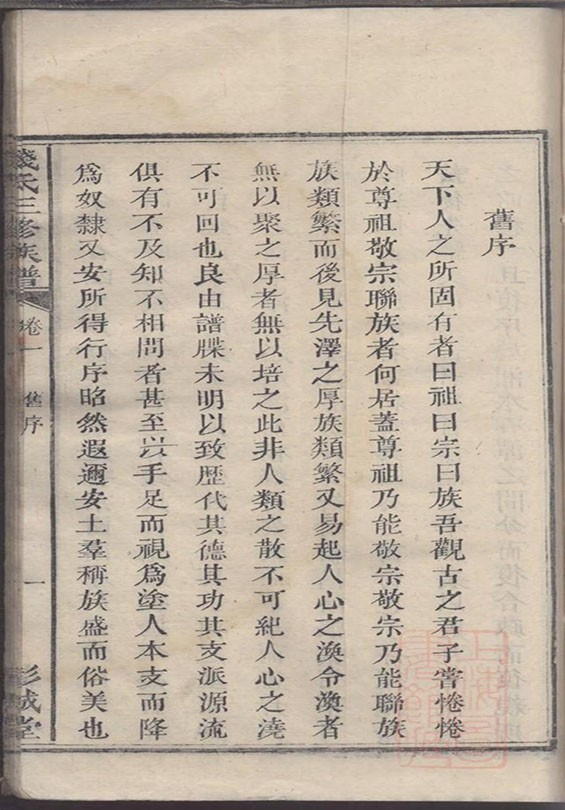 舊序
天下人之所固有者曰祖曰宗曰族吾觀古之君子嘗惓惓
於尊祖敬宗聯族者何居蓋尊祖乃能敬宗敬宗乃能聯族
族類繁而後見先澤之厚族類繁又易起人心之渙令渙者
無以聚之厚者無以培之此非人類之散不可紀人心之澆
不可回也良由譜牒未明以致歷代其德其功其支派源流
俱有不及知不相問者甚至以手足而視爲塗人本支而降
爲奴隸又安所得行序昭然遐邇安土羣稱族盛而俗美也
錢氏三修族譜
卷一
舊序
一
彭城堂